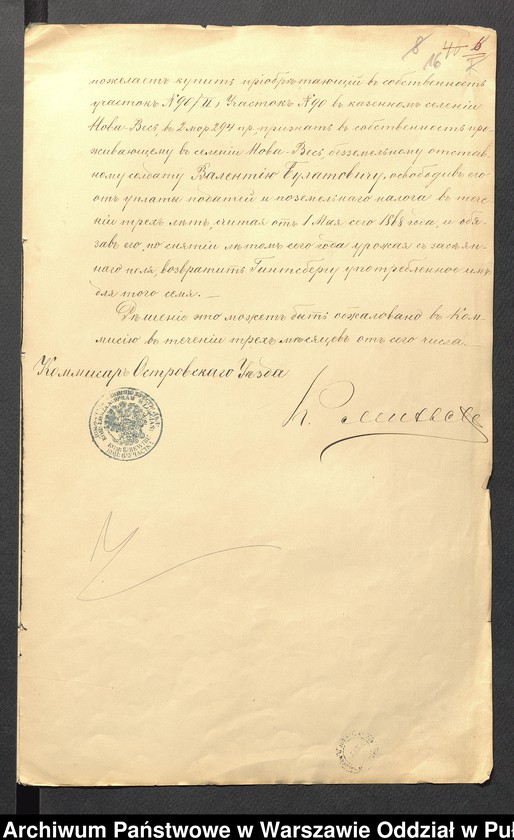 8 16 40 5
пожелаетъ купить пріобрѣтающій въ собственность
участокъ N 90/II, Участокъ N 90 въ казенномъ селеніи
Нова-Весь, въ 2 мор. 294 пр., признать въ собственность про-
живающему въ селеніи Нова-Весь, безземельному отстав-
ному солдату Валентію Булатовичу, освободивъ его
отъ уплаты податей и поземельнаго налога въ тече-
ніи трехъ лѣтъ, считая отъ 1 Мая сего 1868 года, и обя-
завъ его, по снятіи лѣтомъ сего года урожая съ засѣян-
наго поля, возвратить Гинтсбергу употребленное имъ
для того семя. —
Рѣшеніе это можетъ быть обжаловано въ Ком-
мисію въ теченіи трехъ мѣсяцевъ отъ сего числа. —
Коммисаръ Островскаго Уѣзда
Archiwum Państwowe w Warszawie Oddział w Puł